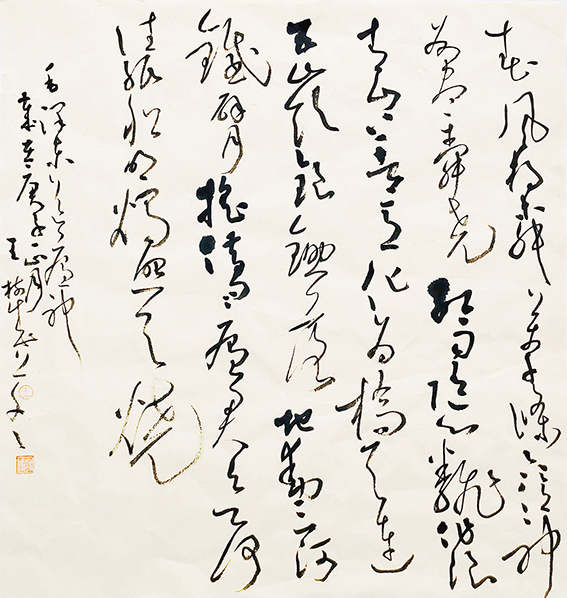 春风杨柳万千条六亿神
州尽舜尧红雨随心翻作浪
青山着意化为桥天连
五岭银锄落地动三河
铁臂摇借问瘟君欲何
往纸船明烛照天烧
毛泽东 送瘟神
岁在庚子正月
王树